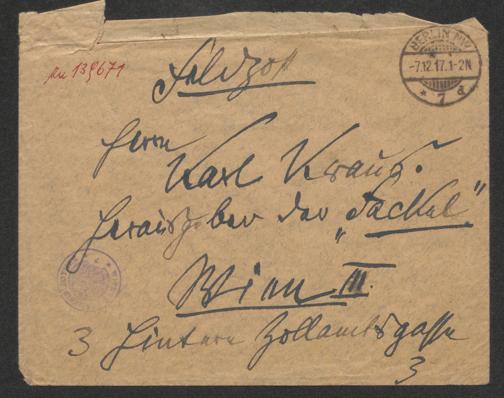 BERLIN NW
-7.12.17.1-2N
* 7 d
139671
Feldpost
Herrn
Karl Kraus.
Herausgeber der „Fackel"
Wien III.
3 Hintere Zollamtsgasse
3